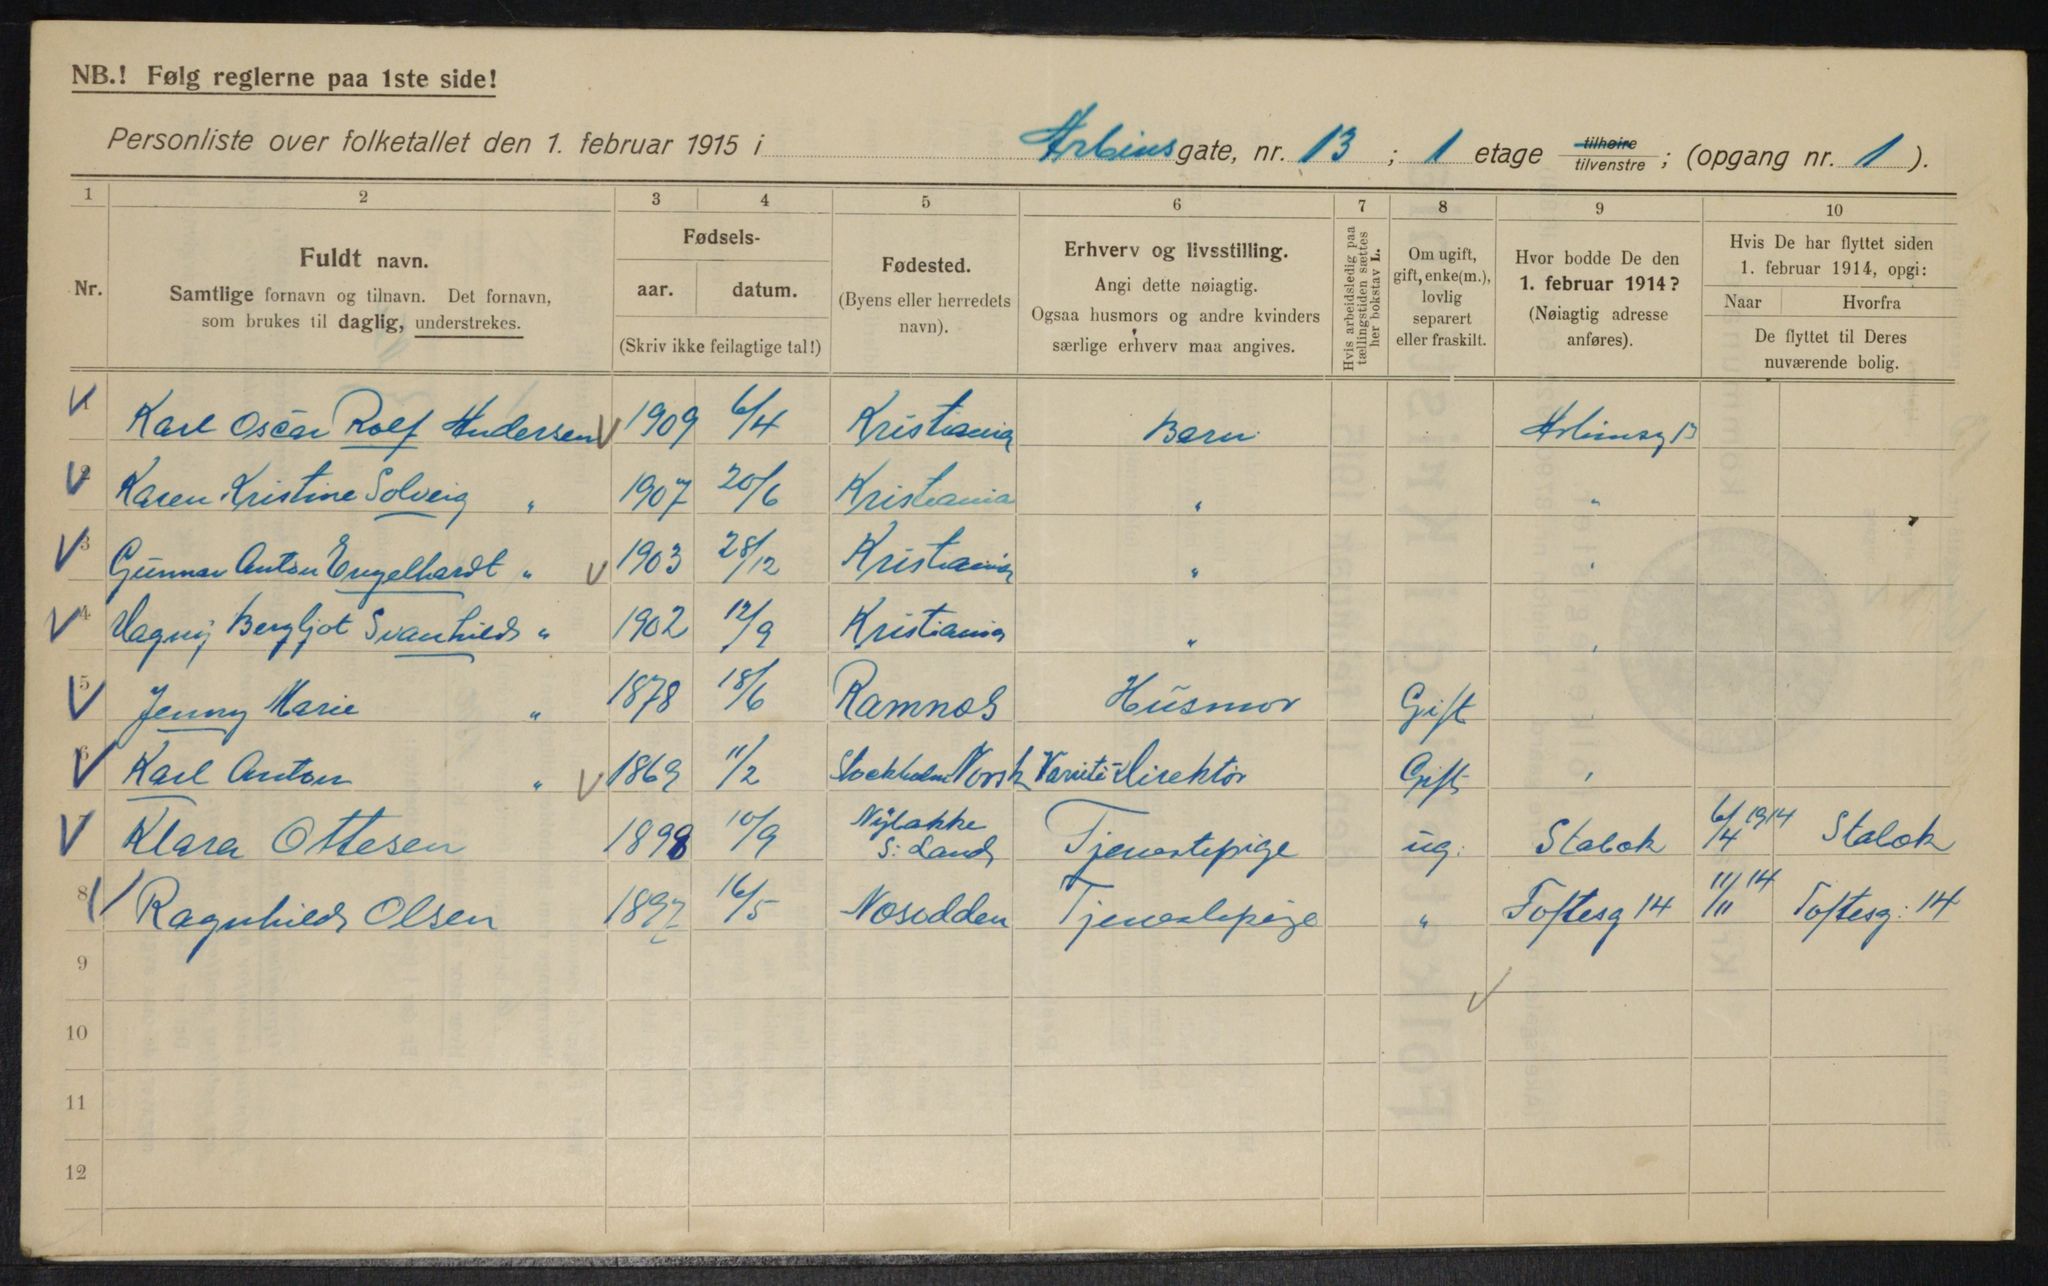 NB.! Følg reglerne paa 1ste side!
Personliste over folketallet den 1. februar 1915 i Arbins gate, nr. 13 ; 1 etage tilhøire tilvenstre ; (opgang nr. 1 ).
1 2 3 4 5 6 7 8 9 10
Nr.
Fuldt navn.
Samtlige fornavn og tilnavn. Det fornavn,
som brukes til daglig, understrekes.
Fødsels-
aar. datum.
(Skriv ikke feilagtige tal!)
Fødested.
(Byens eller herredets
navn).
Erhverv og livsstilling.
Angi dette nøiagtig.
Ogsaa husmors og andre kvinders
særlige erhverv maa angives.
Hvis arbeidsledig paa
tællingstiden sættes
her bokstav L.
Om ugift,
gift, enke(m.),
lovlig
separert
eller fraskilt.
Hvor bodde De den
1. februar 1914?
(Nøiagtig adresse
anføres).
Hvis De har flyttet siden
1. februar 1914, opgi:
Naar Hvorfra
De flyttet til Deres
nuværende bolig.
1 Karl Oscar Rolf Andersen 1909 6/4 Kristiania Barn Arbinsg 13
2 Karen Kristine Solveig " 1907 20/6 Kristiania " "
3 Gunnar Anton Engelhardt " 1903 28/12 Kristiania " "
4 Dagny Bergljot Svanhild " 1902 12/9 Kristiania " "
5 Jenny Marie " 1878 18/6 Ramnæs Husmor Gift "
6 Karl Anton " 1869 11/2 Stockholm Norsk Varieté-Direktør Gift "
7 Klara Ottesen 1898 10/9 S: Land Tjenestepige ug. Stabæk 6/4 1914 Stabæk
8 Ragnhild Olsen 1897 16/5 Næsodden Tjenestepige " Toftesg 14 11/11 14 Toftesg: 14
9
10
11
12